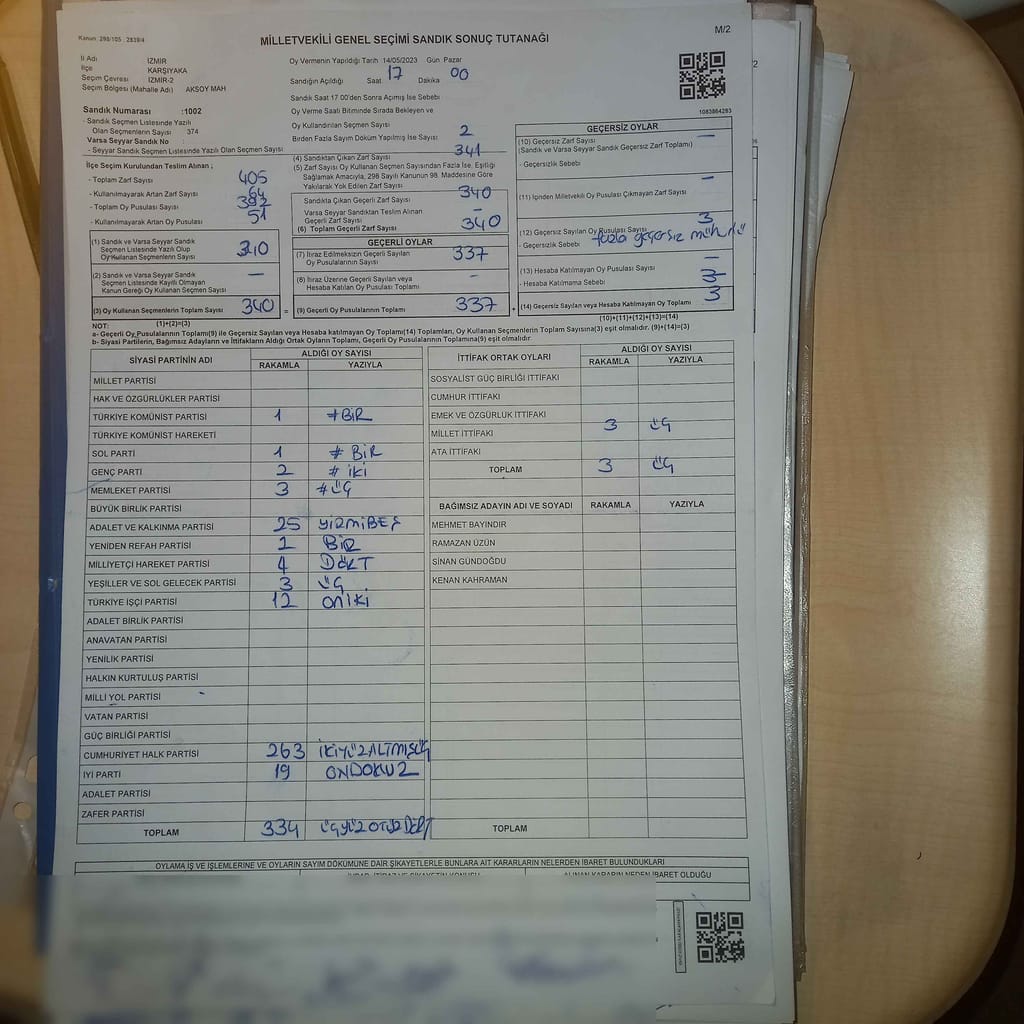 Kanun: 298/105, 2839/4
M/2
MİLLETVEKİLİ GENEL SEÇİMİ SANDIK SONUÇ TUTANAĞI
İl Adı İZMİR
İlçe KARŞIYAKA
Seçim Çevresi İZMİR-2
Seçim Bölgesi (Mahalle Adı) AKSOY MAH
Sandık Numarası :1002
- Sandık Seçmen Listesinde Yazılı
Olan Seçmenlerin Sayısı 374
Varsa Seyyar Sandık No :
- Seyyar Sandık Seçmen Listesinde Yazılı Olan Seçmen Sayısı
İlçe Seçim Kurulundan Teslim Alınan ;
- Toplam Zarf Sayısı 405
- Kullanılmayarak Artan Zarf Sayısı 64
- Toplam Oy Pusulası Sayısı
- Kullanılmayarak Artan Oy Pusulası 51
(1) Sandık ve Varsa Seyyar Sandık
Seçmen Listesinde Yazılı Olup
Oy Kullanan Seçmenlerin Sayısı 340
(2) Sandık ve Varsa Seyyar Sandık
Seçmen Listesinde Kayıtlı Olmayan
Kanun Gereği Oy Kullanan Seçmen Sayısı –
(3) Oy Kullanan Seçmenlerin Toplam Sayısı 340 =
(1)+(2)=(3)
Oy Vermenin Yapıldığı Tarih 14/05/2023 Gün Pazar
Sandığın Açıldığı Saat 17 Dakika 00
Sandık Saat 17:00'den Sonra Açılmış İse Sebebi
Oy Verme Saati Bitiminde Sırada Bekleyen ve
Oy Kullandırılan Seçmen Sayısı 2
Birden Fazla Sayım Döküm Yapılmış İse Sayısı
(4) Sandıktan Çıkan Zarf Sayısı 341
(5) Zarf Sayısı Oy Kullanan Seçmen Sayısından Fazla İse, Eşitliği
Sağlamak Amacıyla, 298 Sayılı Kanunun 98. Maddesine Göre
Yakılarak Yok Edilen Zarf Sayısı
Sandıkta Çıkan Geçerli Zarf Sayısı 340
Varsa Seyyar Sandıktan Teslim Alınan
Geçerli Zarf Sayısı –
(6) Toplam Geçerli Zarf Sayısı 340
GEÇERLİ OYLAR
(7) İtiraz Edilmeksizin Geçerli Sayılan
Oy Pusulalarının Sayısı 337
(8) İtiraz Üzerine Geçerli Sayılan veya
Hesaba Katılan Oy Pusulası Toplamı -
(9) Geçerli Oy Pusulalarının Toplamı 337 +
1083864293
GEÇERSİZ OYLAR
(10) Geçersiz Zarf Sayısı –
(Sandık ve Varsa Seyyar Sandık Geçersiz Zarf Toplamı)
- Geçersizlik Sebebi
(11) İçinden Milletvekili Oy Pusulası Çıkmayan Zarf Sayısı –
(12) Geçersiz Sayılan Oy Pusulası Sayısı 3
- Geçersizlik Sebebi fazla geçersiz mühürlü
(13) Hesaba Katılmayan Oy Pusulası Sayısı –
- Hesaba Katılmama Sebebi 3
(14) Geçersiz Sayılan veya Hesaba Katılmayan Oy Toplamı 3
(10)+(11)+(12)+(13)=(14)
NOT:
a- Geçerli Oy Pusulalarının Toplamı(9) ile Geçersiz Sayılan veya Hesaba katılmayan Oy Toplamı(14) Toplamları, Oy Kullanan Seçmenlerin Toplam Sayısına(3) eşit olmalıdır. (9)+(14)=(3)
b- Siyasi Partilerin, Bağımsız Adayların ve İttifakların Aldığı Ortak Oyların Toplamı, Geçerli Oy Pusulalarının Toplamına(9) eşit olmalıdır.
SİYASİ PARTİNİN ADI ALDIĞI OY SAYISI
RAKAMLA YAZIYLA
MİLLET PARTİSİ
HAK VE ÖZGÜRLÜKLER PARTİSİ
TÜRKİYE KOMÜNİST PARTİSİ 1 #BİR
TÜRKİYE KOMÜNİST HAREKETİ
SOL PARTİ 1 #BİR
GENÇ PARTİ 2 #İKİ
MEMLEKET PARTİSİ 3 #ÜÇ
BÜYÜK BİRLİK PARTİSİ
ADALET VE KALKINMA PARTİSİ 25 YİRMİBEŞ
YENİDEN REFAH PARTİSİ 1 BİR
MİLLİYETÇİ HAREKET PARTİSİ 4 DÖRT
YEŞİLLER VE SOL GELECEK PARTİSİ 3 ÜÇ
TÜRKİYE İŞÇİ PARTİSİ 12 ONİKİ
ADALET BİRLİK PARTİSİ
ANAVATAN PARTİSİ
YENİLİK PARTİSİ
HALKIN KURTULUŞ PARTİSİ
MİLLİ YOL PARTİSİ
VATAN PARTİSİ
GÜÇ BİRLİĞİ PARTİSİ
CUMHURİYET HALK PARTİSİ 263 İKİYÜZALTMIŞÜÇ
İYİ PARTİ 19 ONDOKUZ
ADALET PARTİSİ
ZAFER PARTİSİ
TOPLAM 334 ÜÇYÜZOTUZDÖRT
İTTİFAK ORTAK OYLARI ALDIĞI OY SAYISI
RAKAMLA YAZIYLA
SOSYALİST GÜÇ BİRLİĞİ İTTİFAKI
CUMHUR İTTİFAKI
EMEK VE ÖZGÜRLÜK İTTİFAKI
MİLLET İTTİFAKI 3 ÜÇ
ATA İTTİFAKI
TOPLAM 3 ÜÇ
BAĞIMSIZ ADAYIN ADI VE SOYADI RAKAMLA YAZIYLA
MEHMET BAYINDIR
RAMAZAN ÜZÜN
SİNAN GÜNDOĞDU
KENAN KAHRAMAN
TOPLAM
OYLAMA İŞ VE İŞLEMLERİNE VE OYLARIN SAYIM DÖKÜMÜNE DAİR ŞİKAYETLERLE BUNLARA AİT KARARLARIN NELERDEN İBARET BULUNDUKLARI
ALINAN KARARIN NEDEN İBARET OLDUĞU